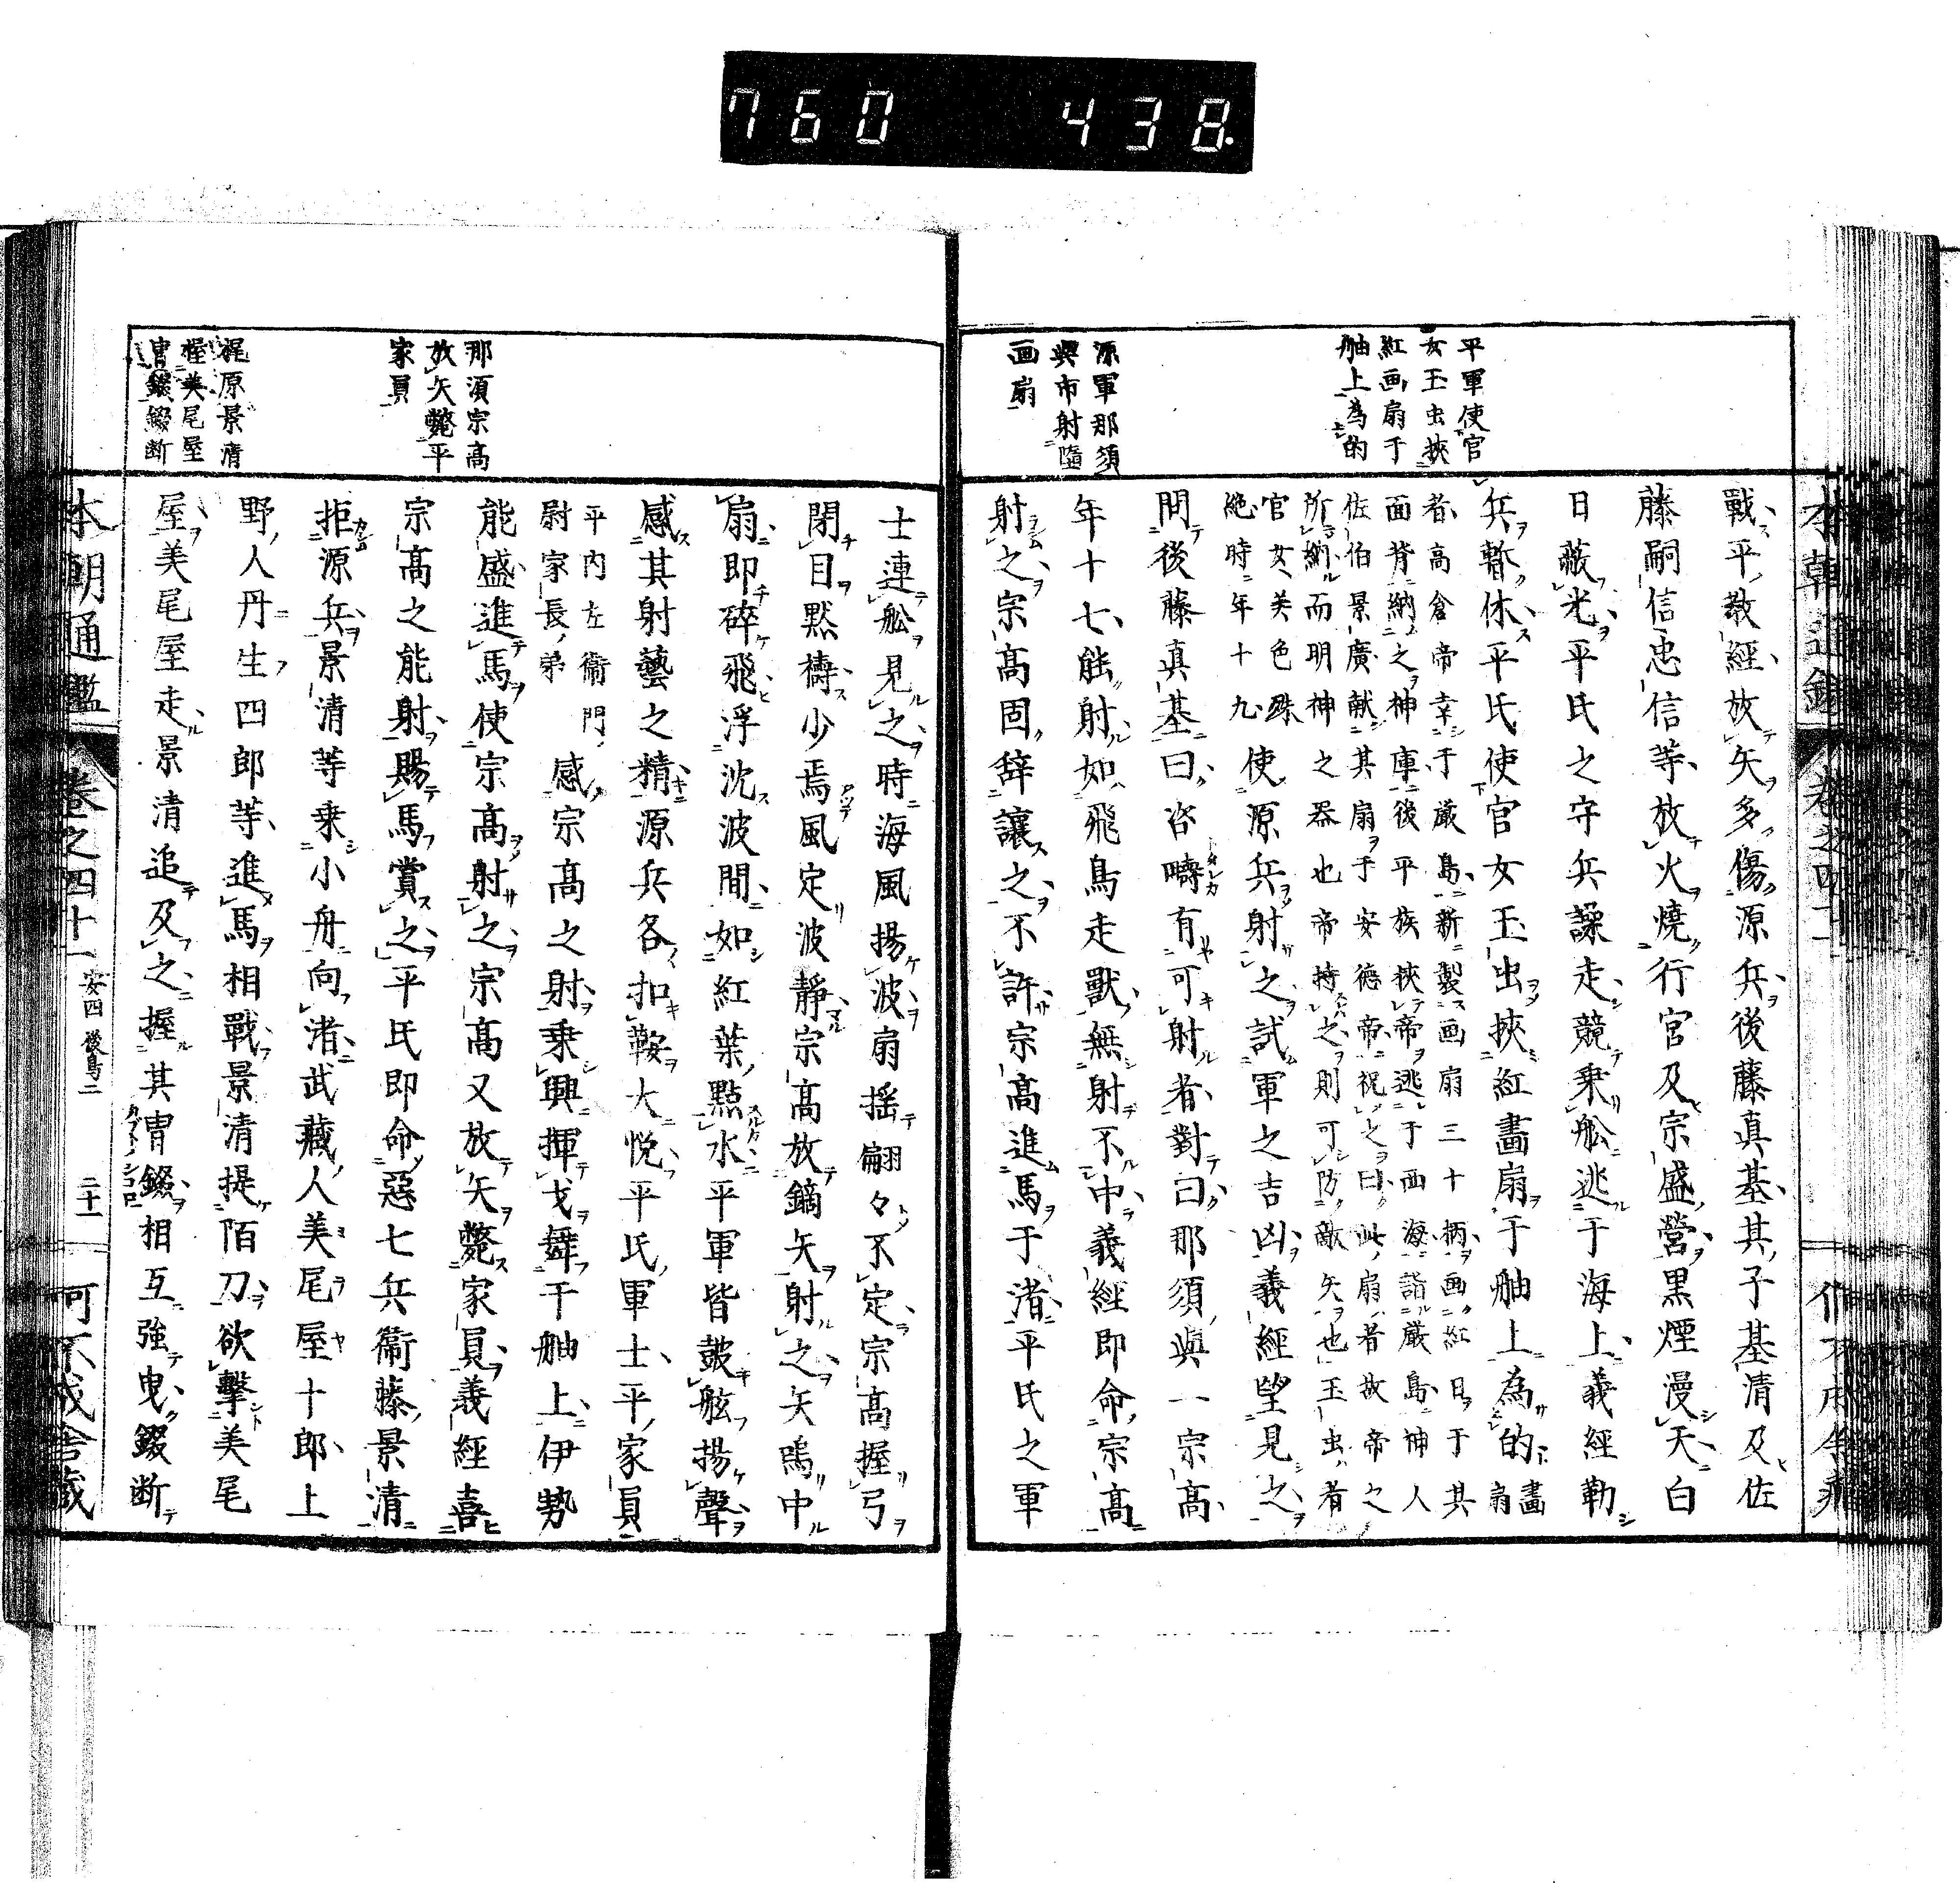 760 438.
平軍使官
女玉虫挾
紅画扇于
舳上為的
源軍那須
與市射墮
画扇
戰平教經放矢多傷源兵後藤真基其子基清及佐
藤嗣信忠信等放火燒行宮及宗盛營黒煙漫天白
日蔽光平氏之守兵譟走競乗舩逃于海上義經勒
兵暫休平氏使官女玉虫挾紅畫扇于舳上為的畫扇
者高倉帝幸于厳島新製画扇三十柄画紅日于其
面背納之神庫後平族挾帝逃于西海詣厳島神人
佐伯景廣献其扇于安徳帝祝之曰此扇者故帝之
所納而明神神之器也帝持之則可防敵矢也玉虫者
官女美色殊
絶時年十九
使源兵射之試軍之吉凶義經望見之
問後藤真基曰咨疇有可射者對曰那須與一宗髙
年十七能射如飛鳥走獸無射不中義經即命宗髙
射之宗髙固辞讓之不許宗髙進馬于渚平氏之軍
那湏宗髙
放矢斃平
家員
梶原景清
握美尾屋
冑錣錣断
士連舩見之時海風揚波扇揺翩々不定宗髙握弓
閉目黙禱少焉風定波靜宗髙放鏑矢射之矢鳴中
扇即碎飛浮沈波間如紅葉點水平軍皆鼓舷揚聲
感其射藝之精源兵各扣鞍大悦平氏軍士平家員
平内左衞門
尉家長弟
感宗髙之射乗興揮戈舞于舳上伊勢
能盛進馬使宗髙射之宗髙又放矢斃家員義經喜
宗髙之能射賜馬賞之平氏即命惡七兵衞藤景清
拒源兵景清等乗小舟向渚武藏人美尾屋十郎上
野人丹生四郎等進馬相戰景清提陌刀欲擊美尾
屋美尾屋走景清追及之握其冑錣相互強曳錣断
本朝通鑑
巻之四十一
安四 後鳥二
二十一